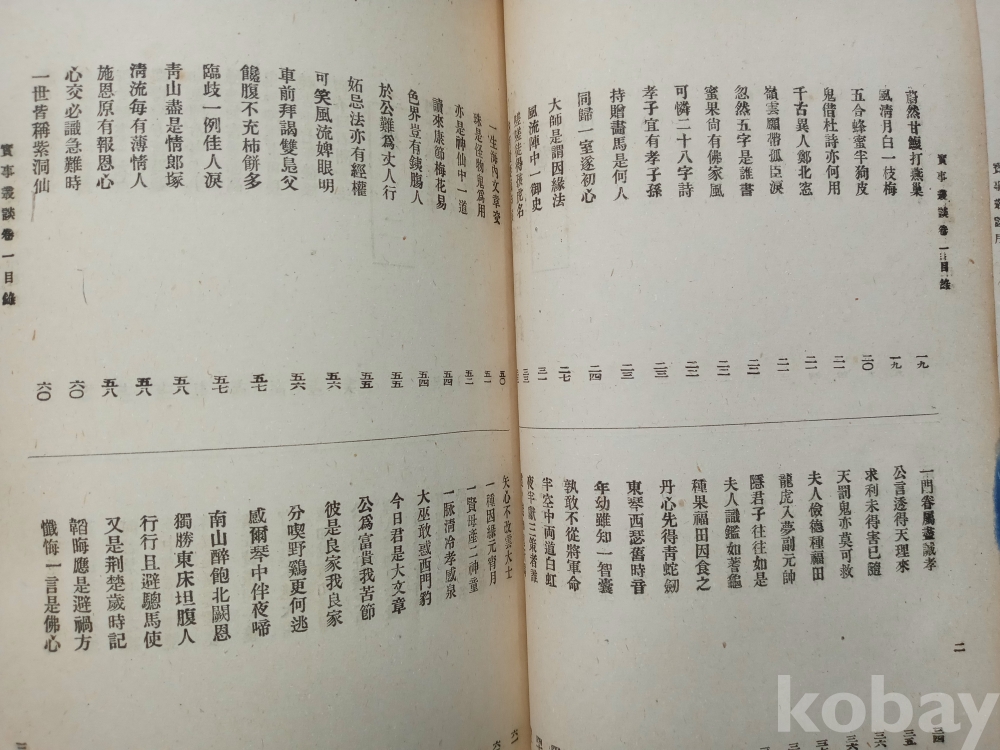 實事叢談卷一目錄
打燕巢 一九
風清月白一枝梅 一九
五合蜂蜜半狗皮 二〇
鬼借杜詩亦何用 二一
千古異人鄭北窓 二一
嶺雲願帶孤臣淚 二一
忽然五字是誰書 二二
蜜果尙有佛家風 二二
可憐二十八字詩 二二
孝子宜有孝子孫 二三
持贈畵馬是何人 二三
同歸一室遂初心 二四
大師是謂因緣法 二七
風流陣中一御史 三一
一門眷屬盡誠孝 三四
公言透得天理來 三五
求利未得害已隨 三六
天罰鬼亦莫可救
夫人儉德種福田
龍虎入夢副元帥
隱君子往往如是
夫人識鑑如蓍龜
種果福田因食之
丹心先得靑蛇劒
東琴西瑟舊時音
年幼雖知一智囊
孰敢不從將軍命
半空中両道白虹
夜半獻三策者誰
二
一生海內文章交 五〇
是怪物鬼爲用 五一
亦是神仙中一道 五二
讀來康節梅花易 五四
色界豈有鐵膓人 五四
於公難爲丈人行 五五
妬忌法亦有經權 五五
可笑風流婢眼明 五六
車前拜謁雙鳧父 五六
饞腹不充柿餠多 五七
臨歧一例佳人淚 五七
靑山盡是情郞塚 五八
淸流每有薄情人 五八
施恩原有報恩心 五八
心交必識急難時 六〇
一世皆稱紫洞仙 六〇
矢心不改雲大士
一種因緣元宵月
一賢母產二神童
一脉淸冷孝感泉
大巫敢惑西門豹
今日君是大文章
公爲富貴我苦節
彼是良家我良家
分喫野鷄更何逃
感爾琴中伴夜啼
南山醉飽北闕恩
獨勝東床坦腹人
行行且避驄馬使
又是荆楚歲時記
韜晦應是避禍方
懺悔一言是佛心
實事叢談卷一目錄
kobay